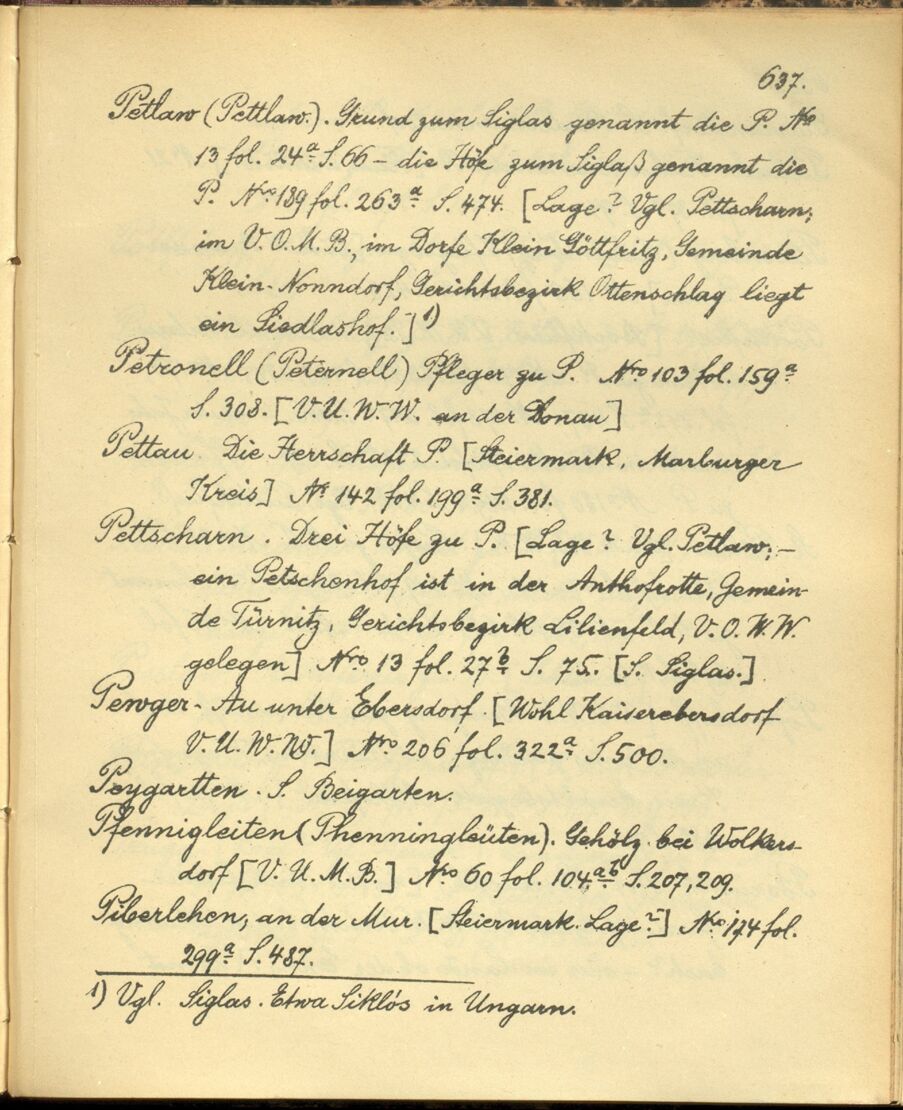 637.
Petlaw (Pettlaw.). Grund zum Siglas genannt die P. Nro
13 fol. 24a S. 66 – die Höfe zum Siglaß genannt die
P. Nro 189 fol. 263a S. 474. [Lage? Vgl. Pettscharn;
im V.O.M.B., im Dorfe Klein Göttfritz, Gemeinde
Klein-Nonndorf, Gerichtsbezirk Ottenschlag liegt
ein Siedlashof.] 1)
Petronell (Peternell) Pfleger zu P. Nro 103 fol. 159a
S. 308. [V.U.W.W. an der Donau]
Pettau. Die Herrschaft P. [Steiermark, Marburger
Kreis] No 142 fol. 199a S. 381.
Pettscharn. Drei Höfe zu P. [Lage? Vgl. Petlaw; –
ein Petschenhof ist in der Anthofrotte, Gemein-
de Türnitz, Gerichtsbezirk Lilienfeld, V.O.W.W.
gelegen] Nro 13 fol. 27b S. 75. [S. Siglas.]
Pewger-Au unter Ebersdorf. [Wohl Kaiserebersdorf
V.U.W.W.] Nro 206 fol. 322a S. 500.
Peygartten. S. Beigarten.
Pfennigleiten (Phenningleüten). Gehölz bei Wolkers-
dorf [V.U.M.B.] Nro 60 fol. 104ab S. 207, 209.
Piberlehen, an der Mur. [Steiermark. Lage?] Nro 174 fol.
299a S. 487.
1) Vgl. Siglas. Etwa Siklós in Ungarn.